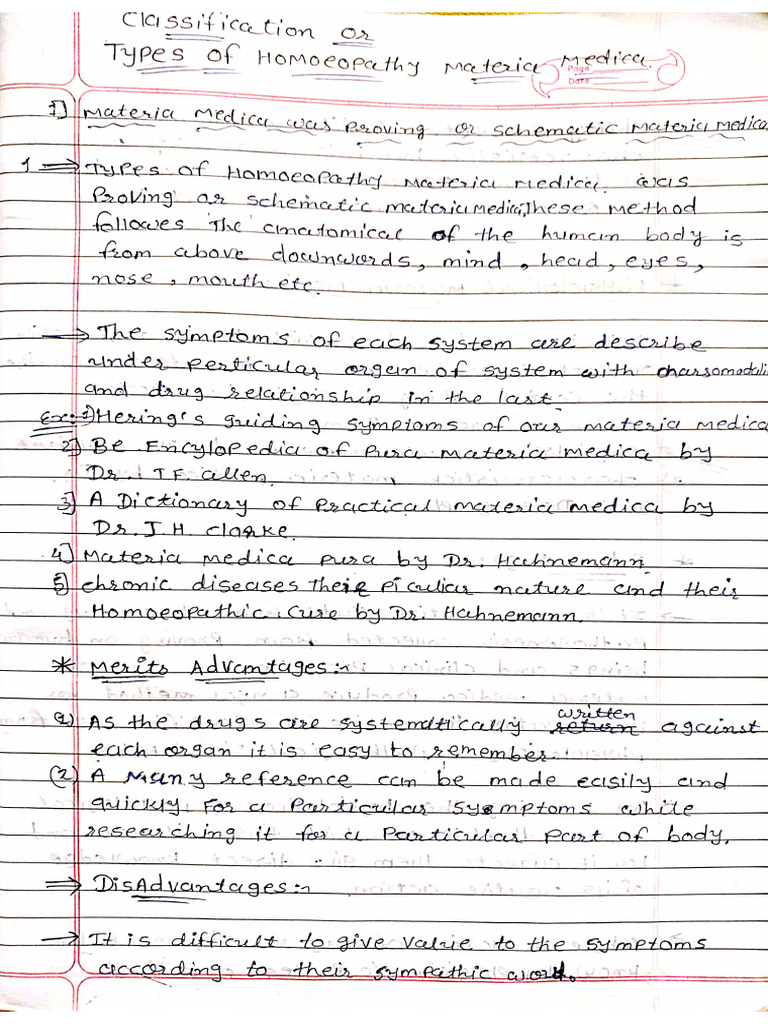 Classification or
Types of Homoeopathy Materia Medica.
Page
Date
I] Materia Medica was Proving or schematic Materia Medica
1 ⇒ Types of Homoeopathy Materia Medica. was
Proving or schematic materia Medica, These method
followes The anatomical of the human body is
from above downwords, mind, head, eyes,
nose, mouth etc.
→ The symptoms of each system are describe
under perticular organ of system with charsomodali
and drug relationship in the last.
Ex:- 1) Hering's guiding symptoms of our materia medica
2) Be Encylopedia of Pura materia medica by
Dr. T.F. allen.
3] A Dictionary of Practical materia medica by
Dr. J. H. clarke.
4] Materia medica pura by Dr. Hahnemann
5] chronic diseases their piculiar nature and their
Homoeopathic Cure by Dr. Hahnemann.
* Merits Advantages:-
1) As the drugs are systemattically return written against
each organ it is easy to remember.
(2) A Many reference can be made easily and
quickly. For a Particular Symptoms while
researching it for a Particular Part of body.
⇒ DisAdvantages:-
→ It is difficult to give value to the symptoms
according to their sympathic work.